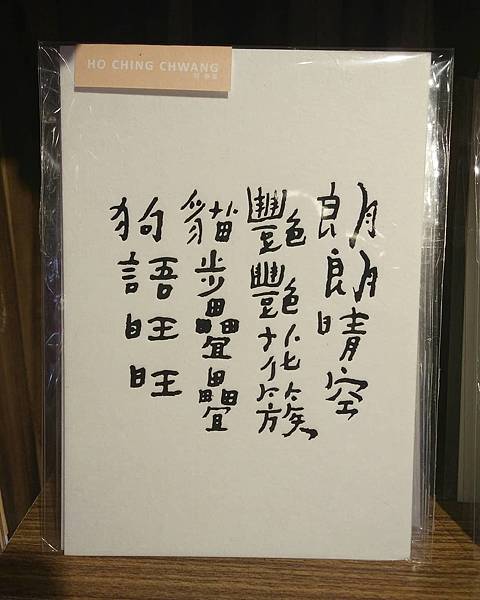 HO CHING CHWANG
朗朗晴空
豔豔花簇
貓步疊疊
狗語旺旺